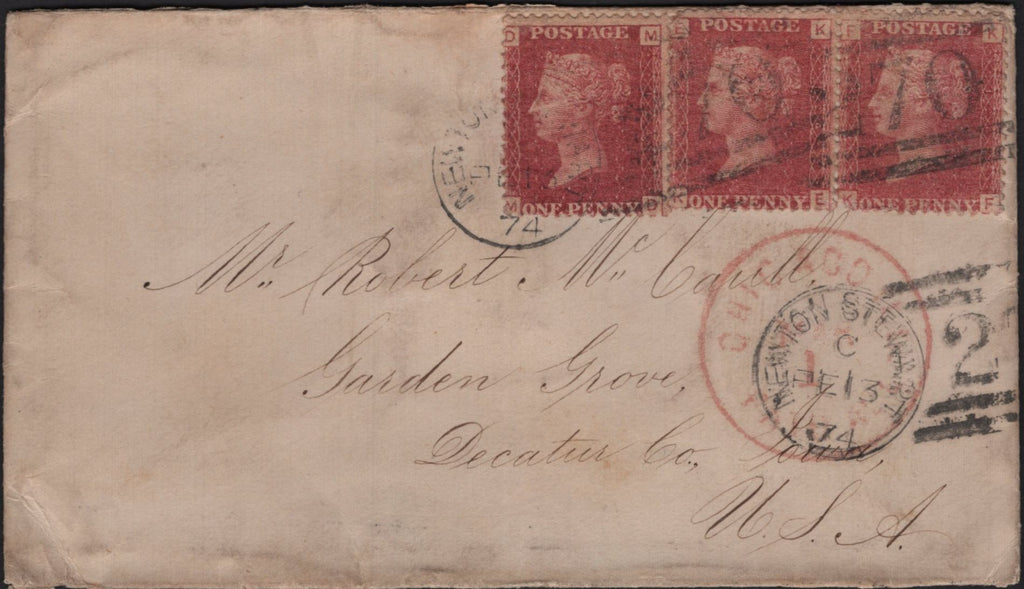 D M POSTAGE
E K POSTAGE
F K POSTAGE
M D ONE PENNY
K E ONE PENNY
K F ONE PENNY
70
NEWTON
74
Mr. Robert Mc
Garden Grove,
Decatur Co., Iowa,
U.S.A.
CHICAGO
NEWTON STEWART
C
FE 13
74
2